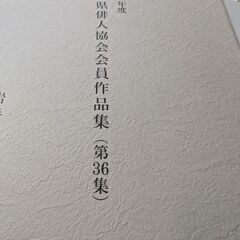 年度
県俳人協会会員作品集(第36集)